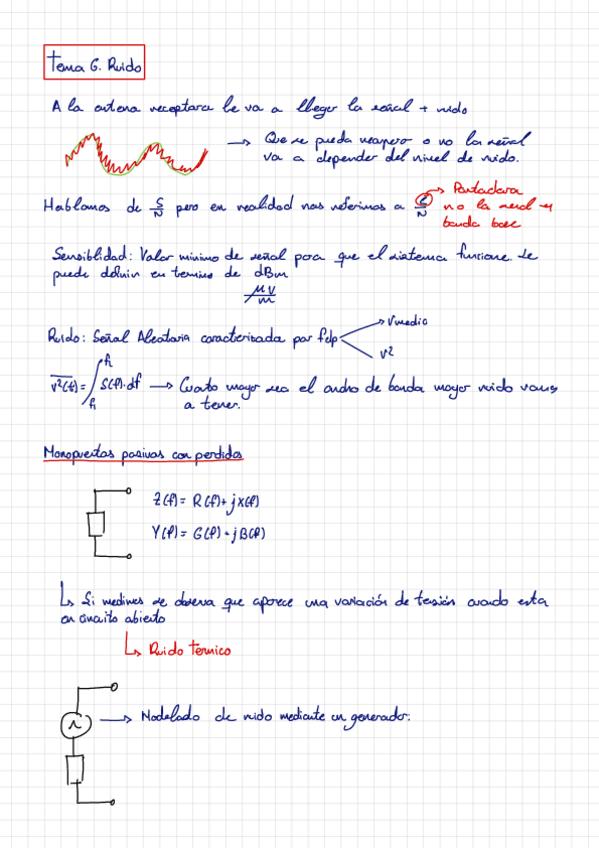 Tema 6. Ruido
A la antena receptora le va a llegar la señal + ruido
→ Que se pueda recuperar o no la señal
va a depender del nivel de ruido.
Hablamos de S/N pero en realidad nos referimos a C/N
→ Portadora
no la señal en
banda base
Sensiblidad: Valor mínimo de señal para que el sistema funcione. Se
puede definir en termino de dBm
μV/m
Ruido: Señal Aleatoria caracterizada por fdp
→ Vmedio
V²
v²(t) = ∫ S(f)·df → Cuanto mayor sea el ancho de banda mayor ruido vamos
a tener.
Monopuertas pasivas con perdidas
Z(f) = R(f) + jX(f)
Y(f) = G(f) + jB(f)
↳ Si medimos se observa que aparece una variación de tensión cuando esta
en circuito abierto
↳ Ruido térmico
→ Modelado de ruido mediante un generador.